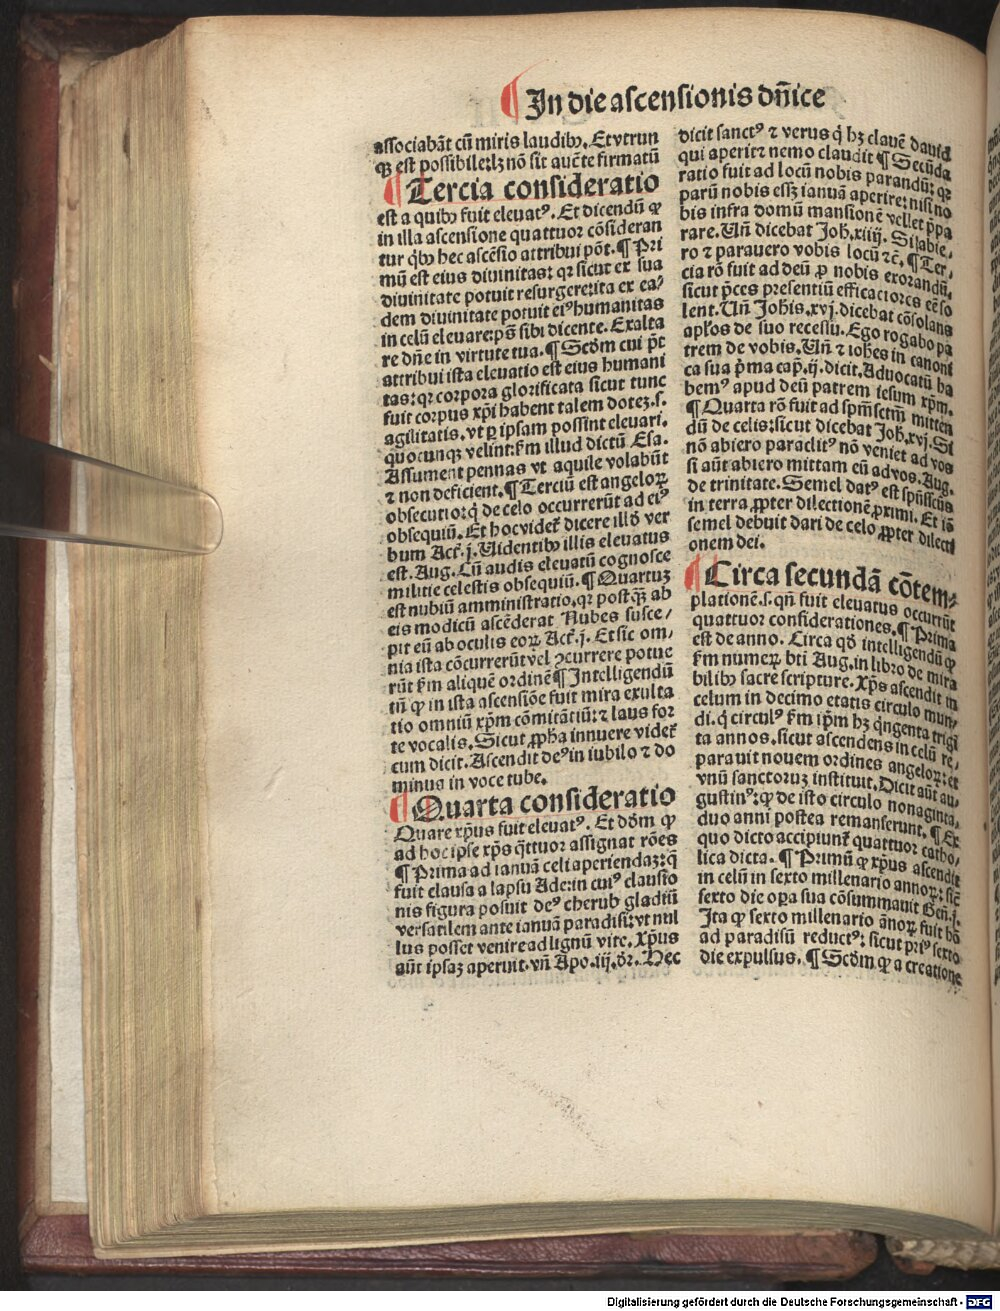 ¶ In die ascensionis dñice
associabãt cũ miris laudibꝰ. Et vtrun
qꝫ est possibile: lꝫ nõ sit autẽte firmatũ
¶ Tercia consideratio
est a quibꝰ fuit eleuatꝰ. Et dicendũ ꝙ
in illa ascensione quattuor cõsideran
tur qͥbꝰ hec ascẽsio attribui põt. ¶ Pri
mũ est eius diuinitas: qꝛ sicut ex sua
diuinitate potuit resurgere: ita ex ea⸗
dem diuinitate potuit eiꝰ humanitas
in celũ eleuare: pš sibi dicente. Exalta
re dñe in virtute tua. ¶ Scďm cui põt
attribui ista eleuatio est eius humani
tas: qꝛ corpora glorificata sicut tunc
fuit corpus xp̃i habent talem dotẽ. s.
agilitatis. vt ꝑ ipsam possint eleuari.
quocunqꝫ velint: ẜm illud dictũ Esa.
Assument pennas vt aquile volabũt
⁊ non deficient. ¶ Terciũ est angeloꝝ
obsecutio: q̇ de celo occurrerũt ad eiꝰ
obsequiũ. Et hoc videt̃ dicere illď ver
bum Act̃. j. Uidentibꝰ illis eleuatus
est. Aug. Cũ audis eleuatũ cognosce
militie celestis obsequiũ. ¶ Quartuꝫ
est nubiũ amministratio. qꝛ postqꝫ̃ ab
eis modicũ ascẽderat Nubes susce⸗
pit eũ ab oculis eoꝝ Act̃. j. Et sic om⸗
nia ista cõcurrerũt vel ꝯcurrere potue
rũt ẜm aliquẽ ordinẽ ¶ Intelligendũ
tñ ꝙ in ista ascensiõe fuit mira exulta
tio omniũ xp̃m cõmitãtiũ: ⁊ laus for
te vocalis. Sicut ꝓpħa innuere videt̃
cum dicit. Ascendit deꝰ in iubilo ⁊ do
minus in voce tube.
¶ Quarta consideratio
Quare xp̃us fuit eleuatꝰ. Et ďm ꝙ
ad hoc ipse xp̃s q̃ttuor assignat rões
¶ Prima ad ianuã celi aperiendaꝫ: q̇
fuit clausa a lapsu Ade: in cuiꝰ clausio
nis figura posuit deꝰ cherub gladiũ
versatilem ante ianuã paradisi: vt nul
lus posset venire ad lignũ vite. Xp̃us
aũt ipsaꝫ aperuit. vñ Apo. iij. ďr. Hec
dicit sanctꝰ ⁊ verus q̇ hꝫ clauẽ dauid
qui aperit ⁊ nemo claudit ¶ Secũda
ratio fuit ad locũ nobis parandũ: qꝛ
parũ nobis esſꝫ ianuã aperire: nisi no
bis infra domũ mansionẽ vellet p̃pa
rare. Uñ dicebat Joh. xiiij. Si abie⸗
ro ⁊ parauero vobis locũ ⁊c̃. ¶ Ter⸗
cia rõ fuit ad deũ ꝓ nobis exorandũ.
sicut p̃ces presentiũ efficaciores eẽ so
lent. Uñ Joħis. xvj. dicebat cõsolans
apl̃os de suo recessu. Ego rogabo pa
trem de vobis. Uñ ⁊ ioħes in canoni
ca sua p̃ma cap̃. ij. dicit. Aduocatũ ha
bemꝰ apud deũ patrem iesum xp̃m.
¶ Quarta rõ fuit ad sp̃m sctm̃ mitten
dũ de celis: sicut dicebat Joh̃. xvj. Si
nõ abiero paraclitꝰ nõ veniet ad vos
si aũt abiero mittam eũ ad vos. Aug.
de trinitate. Semel datꝰ est sp̃ũsscũs
in terra ꝓpter dilectionẽ ꝓximi. Et iõ
semel debuit dari de celo ꝓpter dilecti
onem dei.
¶ Circa secundã cõtem⸗
plationẽ. s. qñ fuit eleuatus occurrũt
quattuor considerationes. ¶ Prima
est de anno. Circa qď intelligendũ ꝙ
ẜm numeꝝ bt̃i Aug. in libro de mira
bilibꝰ sacre scripture. Xp̃s ascendit in
celum in decimo etatis circulo mun⸗
di. q̇ circulꝰ ẜm ip̃m hꝫ q̇ngenta trigĩ
ta annos. sicut ascendens in celũ re⸗
parauit nouem ordines angeloꝝ: et
vnũ sanctoruꝫ instituit. Dicit aũt au⸗
gustinꝰ: ꝙ de isto circulo nonaginta⸗
duo anni postea remanserunt. ¶ Ex
quo dicto accipiunt̃ quattuor catho⸗
lica dicta. ¶ Primũ ꝙ xp̃us ascendit
in celũ in sexto millenario annoꝝ: sic̃
sexto die oꝑa sua cõsummauit Geñ. j.
Ita ꝙ sexto millenario ãnoꝝ fuit hõ
ad paradisũ reductꝰ: sicut priꝰ sexto
die expulsus. ¶ Scďm ꝙ a creatione
Digitalisierung gefördert durch die Deutsche Forschungsgemeinschaft - DFG